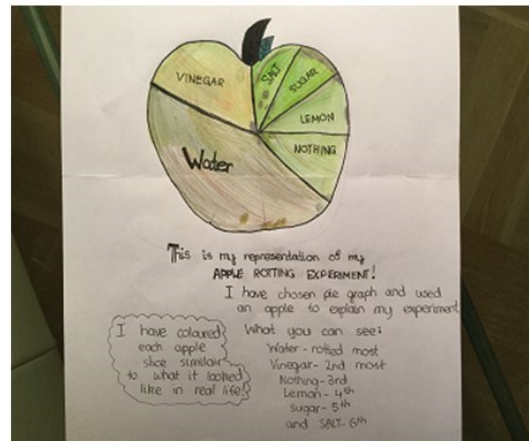 VINEGAR
SALT
SUGAR
LEMON
NOTHING
Water
This is my representation of my
APPLE ROTTING EXPERIMENT!
I have chosen pie graph and used
an apple to explain my experiment
I have coloured
each apple
slice similair
to what it looked
like in real life!
What you can see:
Water - rotted most
Vinegar - 2nd most
Nothing - 3rd
Lemon - 4th
sugar - 5th
and SALT - 6th